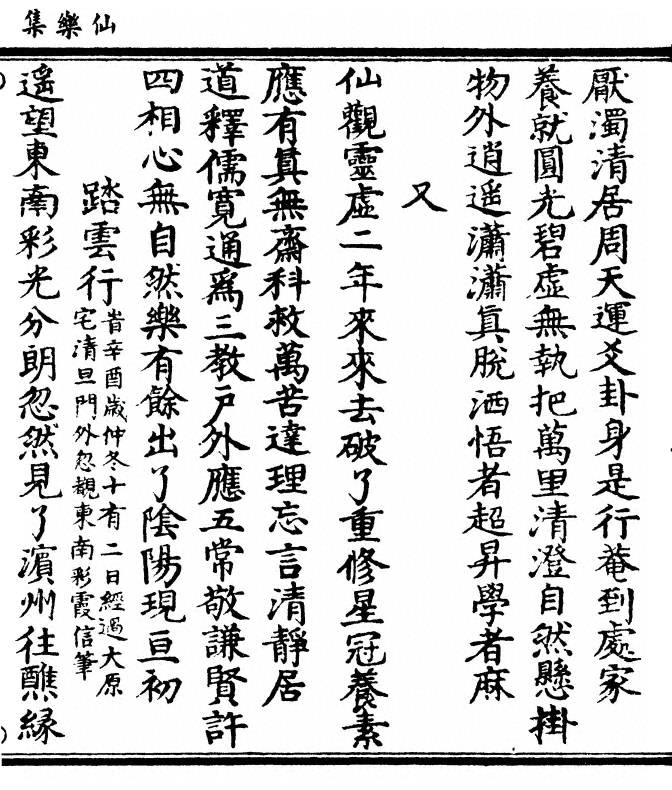 仙樂集
厭濁清居周天運爻卦身是行菴到處家
養就圓光碧虛無執把萬里清澄自然懸掛
物外逍遥瀟瀟眞脫洒悟者超昇學者麻
又
仙觀靈虛二年來來去破了重修星冠養素
應有眞無齋科救萬苦達理忘言清靜居
道釋儒寬通爲三教戸外應五常敬謙賢許
四相心無自然樂有餘出了陰陽現亘初
踏雲行 昔辛酉歲仲冬十有二日經過大原
宅清旦門外忽覩東南彩霞信筆
遥望東南彩光分朗忽然見了濱州往醮緣